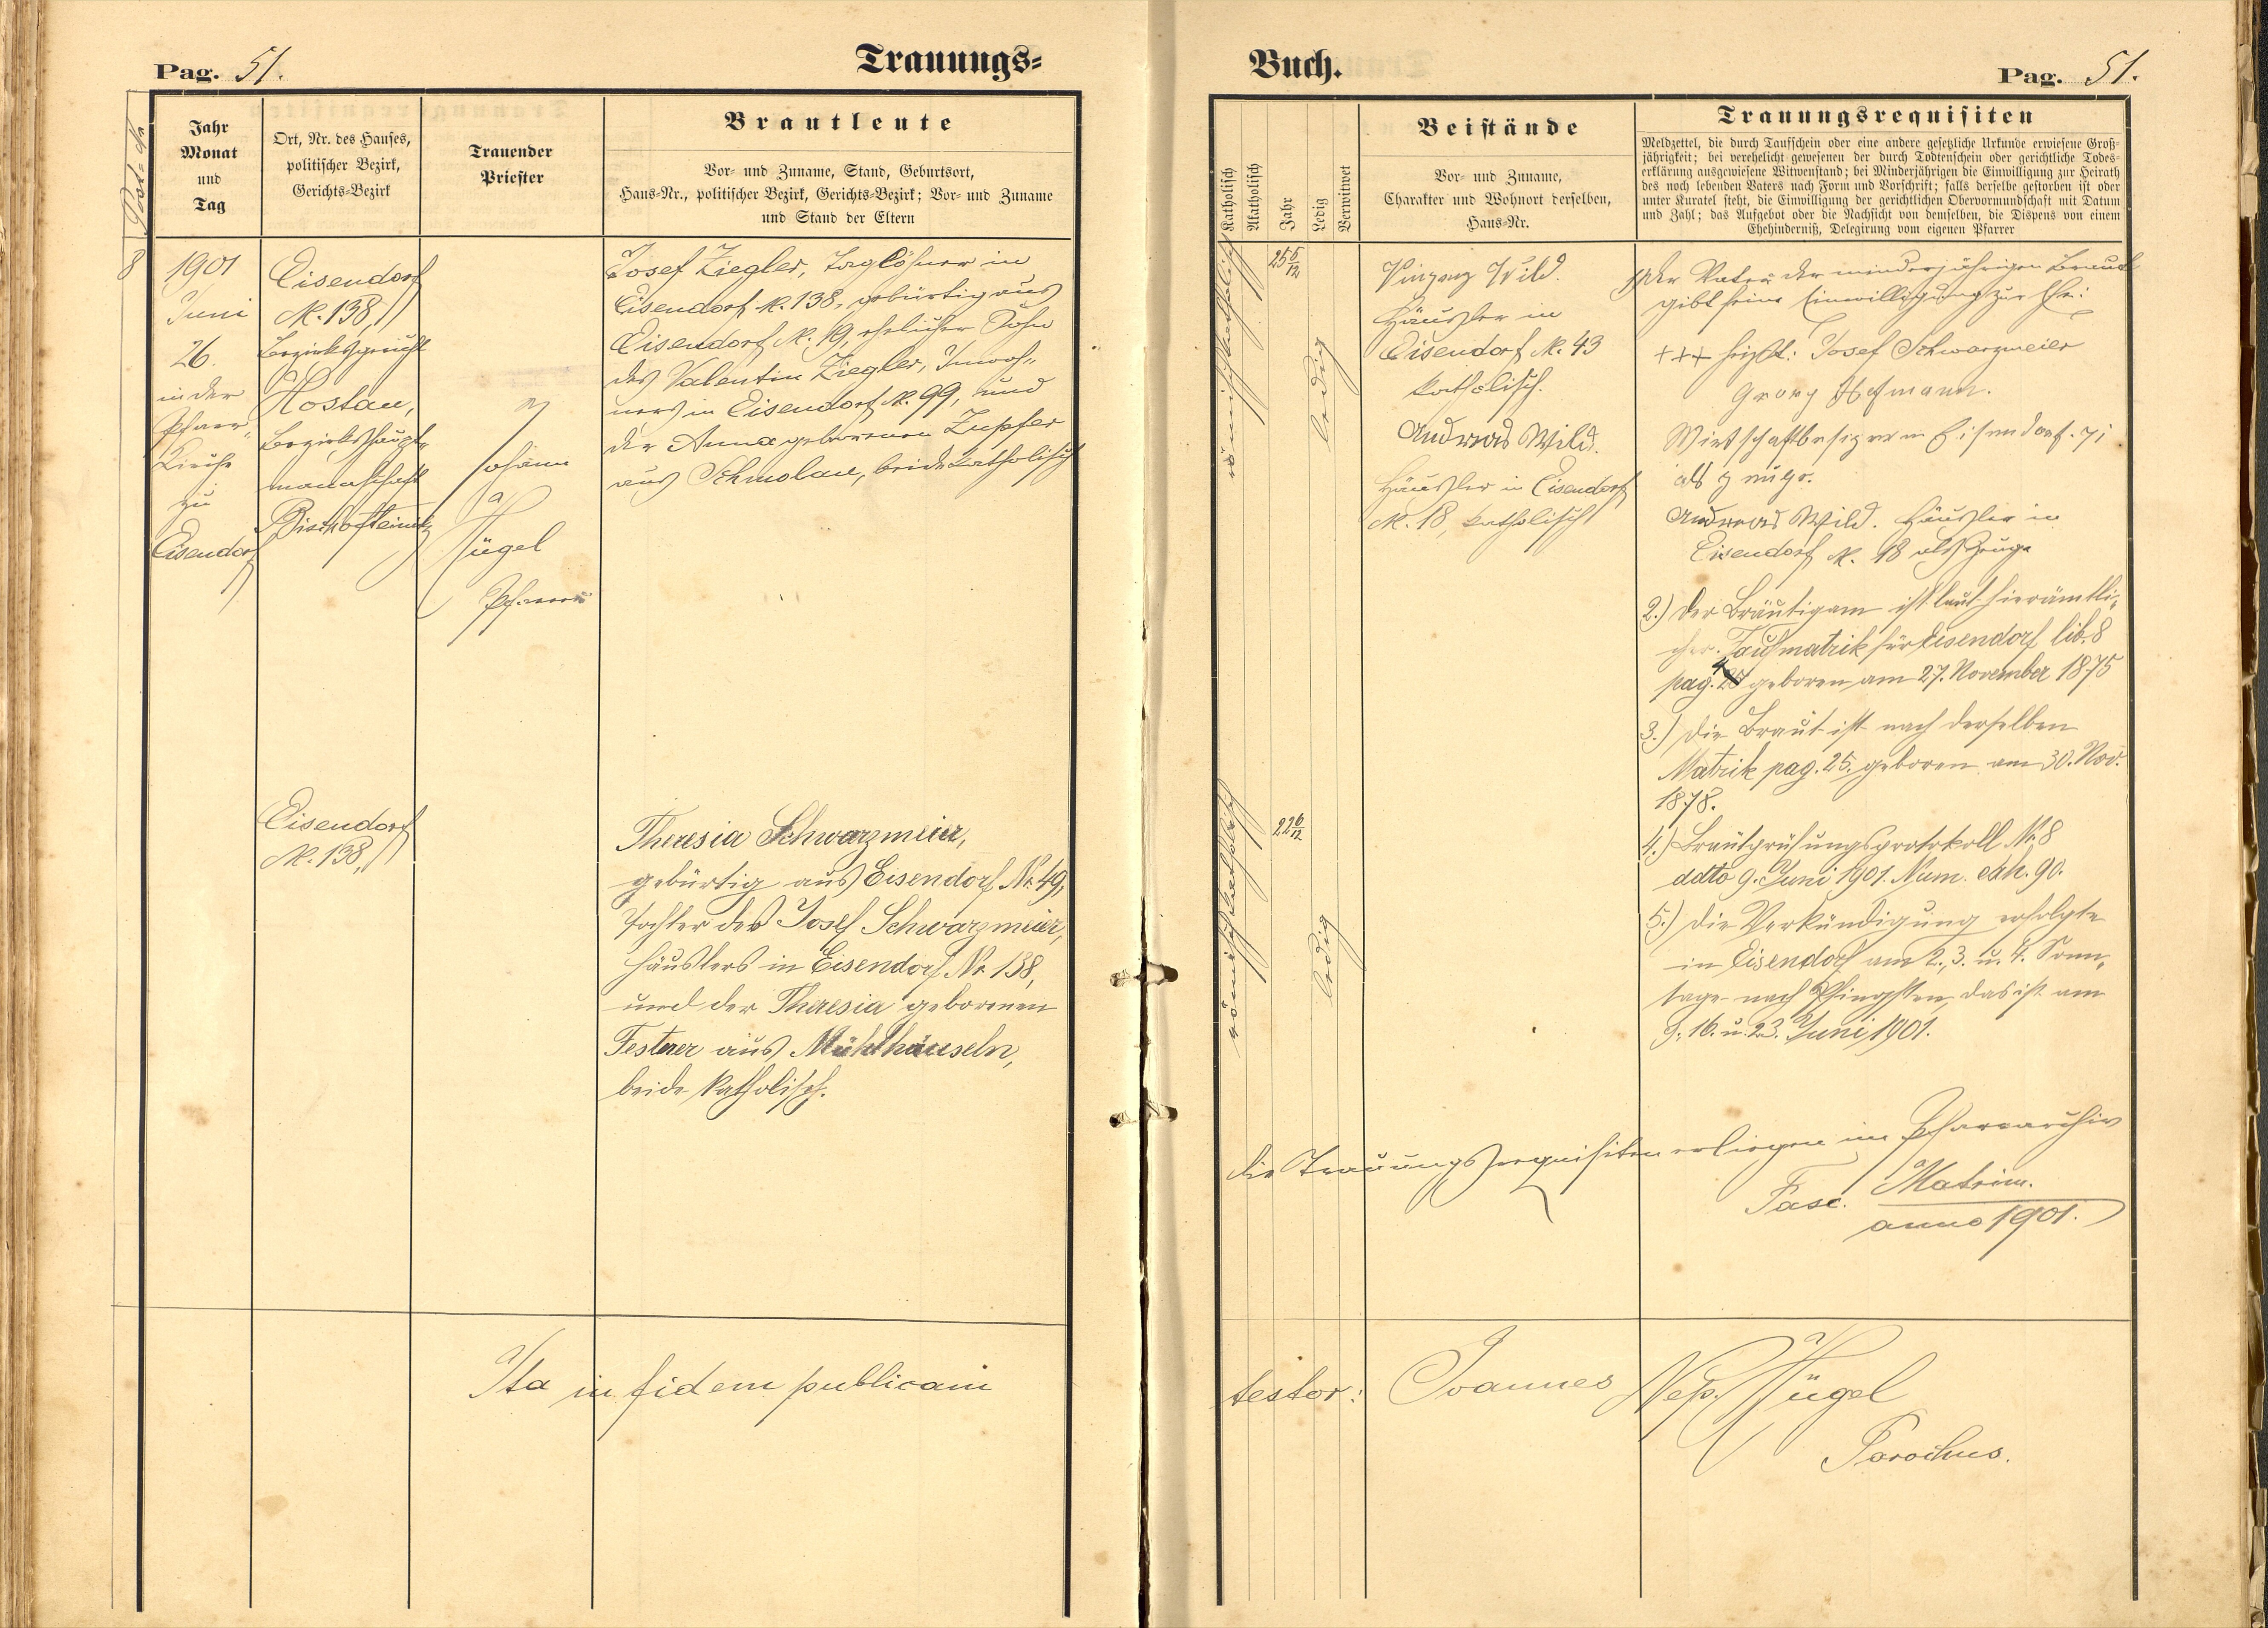 Pag. 51.
Trauungs=
Post-№
Jahr
Monat
und
Tag
Ort, Nr. des Hauses,
politischer Bezirk,
Gerichts-Bezirk
Trauender
Priester
Brautleute
Vor- und Zuname, Stand, Geburtsort,
Haus-Nr., politischer Bezirk, Gerichts-Bezirk; Vor- und Zuname
und Stand der Eltern
8
1901
Juni
26.
in der
Pfarr-
Kirche
zu
Eisendorf
Eisendorf
N. 138,
Bezirksgericht
Hostau,
Bezirkshaupt-
mannschaft
Bischofteinitz
Johann
Hügel
Pfarrer
Josef Ziegler, Taglöhner in
Eisendorf N. 138, gebürtig aus
Eisendorf N. 19, ehelicher Sohn
des Valentin Ziegler, Inwoh-
ners in Eisendorf N. 99, und
der Anna geborenen Zupfer
aus Schmolau, beide katholisch
Eisendorf
N. 138,
Theresia Schwarzmeier,
gebürtig aus Eisendorf Nr. 49,
Tochter des Josef Schwarzmeier,
Häuslers in Eisendorf Nr. 138,
und der Theresia geborenen
Festerer aus Mühlhäuseln,
beide katholisch.
Ita in fidem publicam
Buch.
Pag. 51.
Katholisch
Akatholisch
Jahr
Ledig
Verwitwet
Beistände
Vor- und Zuname,
Charakter und Wohnort derselben,
Haus-Nr.
Trauungsrequisiten
Meldzettel, die durch Taufschein oder eine andere gesetzliche Urkunde erwiesene Groß-
jährigkeit; bei verehelicht gewesenen der durch Todtenschein oder gerichtliche Todes-
erklärung ausgewiesene Witwenstand; bei Minderjährigen die Einwilligung zur Heirath
des noch lebenden Vaters nach Form und Vorschrift; falls derselbe gestorben ist oder
unter Kuratel steht, die Einwilligung der gerichtlichen Obervormundschaft mit Datum
und Zahl; das Aufgebot oder die Nachsicht von demselben, die Dispens von einem
Ehehinderniß, Delegirung vom eigenen Pfarrer
römisch katholisch
25 6/12
ledig
Vinzenz Wild.
Häusler in
Eisendorf N. 43
katholisch.
Andreas Wild.
Häusler in Eisendorf
N. 18, katholisch
1) Der Vater der minderjährigen Braut
gibt seine Einwilligung zur Ehe:
+++ Josef Schwarzmeier
Georg Hofmann.
Wirtschaftbesizer in Eisendorf. 71
als zeuge.
Andreas Wild. Häusler in
Eisendorf N. 18 als Zeuge
2.) Der Bräutigam ist laut hierämtli-
cher Taufmatrik für Eisendorf lib. 8
pag. 4 geboren am 27. November 1875
3.) Die Braut ist nach derselben
Matrik pag. 25. geboren am 30. Nov.
1878.
4.) Brautprüfungsprotokoll Nr. 8
ddto 9. Juni 1901. Num. exh. 90.
5.) Die Verkündigung erfolgte
in Eisendorf am 2., 3. u. 4. Sonn-
tage nach Pfingsten, das ist am
9., 16. u. 23. Juni 1901.
römisch katholisch
22 6/12
ledig
Die Trauungsrequisiten erliegen im Pfarrarchiv
Fasc. Matrim.
anno 1901.
testor: Joannes Nep. Hügel
Parochus.